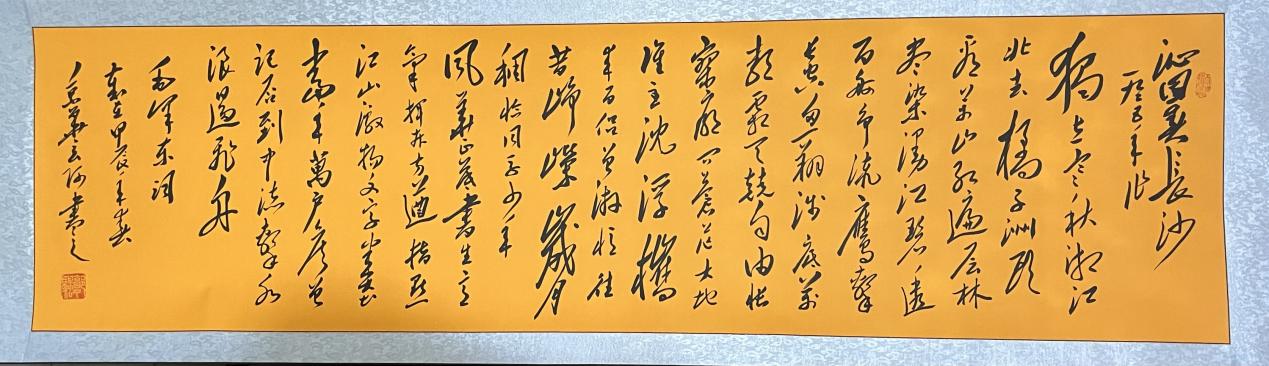 沁园春長沙
一九二五年作
独立寒秋湘江
北去橘子洲头
看万山红遍层林
尽染漫江碧透
百舸争流鹰击
長空鱼翔浅底万
类霜天竞自由怅
寥廓问苍茫大地
谁主沉浮携
来百侣曾游忆往
昔峥嵘歲月
稠恰同学少年
风華正茂書生意
气挥斥方遒指点
江山激扬文字粪土
当年萬户侯曾
记否到中流击水
浪遏飞舟
毛泽东词
岁在甲辰年春
京華云书之